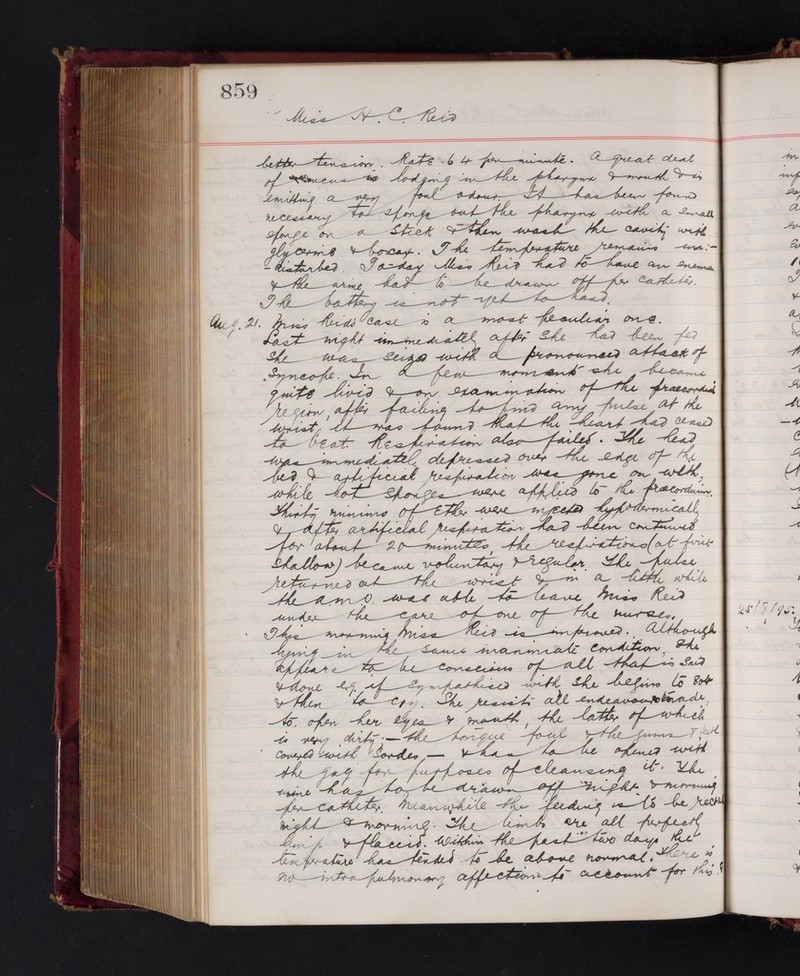 859
Miss H. C. Reid
better tension. Rate 64 per minute. A great deal
of mucus is lodging in the pharynx & mouth & is
emitting a very foul odour. It has been found
necessary to sponge out the pharynx with a small
sponge on a stick & then wash the cavity with
glycerine & borax. The temperature remains un:-
-disturbed. To-day Miss Reid had to have an enema
& the urine had to be drawn off per catheter.
The battery is not yet to hand.
Aug. 21. Miss Reid's case is a most peculiar one.
Last night immediatel after she had been fed
she was seized with a pronounced attack of
Syncope. In a few moments she became
quite livid & on examination of the praecordial
region, after failing to find any pulse at the
wrist, it was found that the heart had ceased
to beat. Respiration also failed. The head
was immediately depressed over the edge of the
bed & artificial respiration was gone on with,
while hot sponges were applied to the praecordium.
Thirty minims of Ether were injected hypodermically
& after artificial respiration had been continued
for about 20 minutes, the respirations (at first
shallow) became voluntary & regular. The pulse
returned at the wrist & in a little while
the A.M.O. was able to leave Miss Reid
under the care of one of the nurses.
This morning Miss Reid is improved. Although
lying in the same inanimate condition, she
appears to be conscious of all that is said
& done e.g. if sympathised with she begins to sob
& then to cry. She resists all endeavours made
to open her eyes & mouth, the latter of which
is very dirty; — the tongue foul & the gums & teeth
covered with Sordes, — & has to be opened with
the gag for purposes of cleansing it. The
urine has to be drawn off night & morning
per catheter. Meanwhile the feeding is to be rectal
night & morning. The limbs are all perfectly
limp & flaccid. Within the past two days the
temperature has tended to be above normal. There is
no intra pulmonary affection to account for this &
25/8/95.